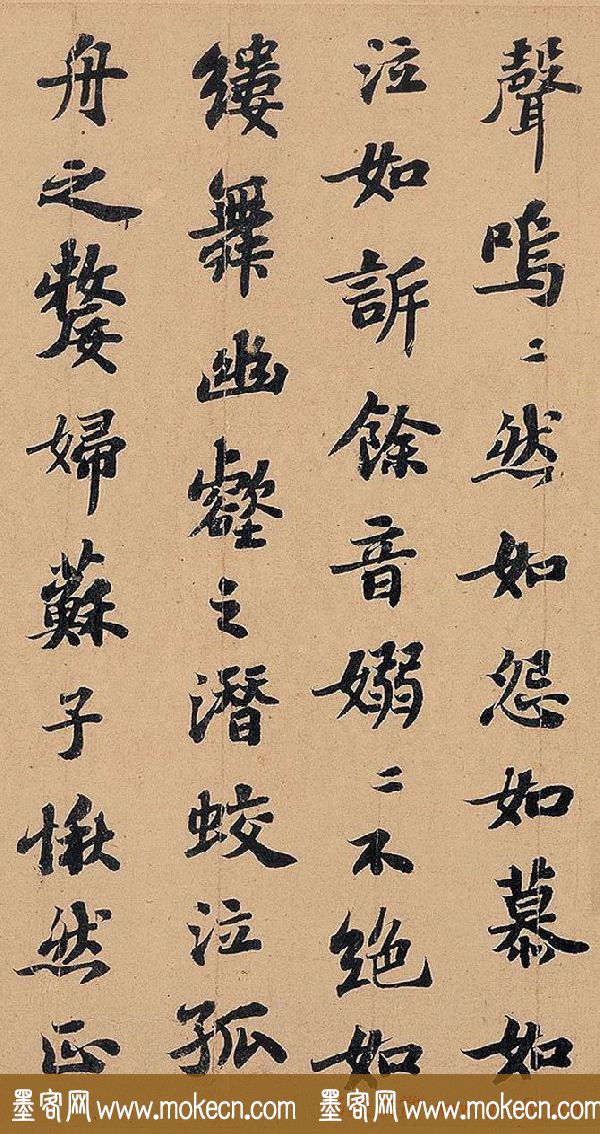 聲嗚〻然如怨如慕如
泣如訴餘音嫋〻不絕如
縷舞幽壑之潛蛟泣孤
舟之嫠婦蘇子愀然正
墨客网 www.mokecn.com 墨客网 www.mokecn.com